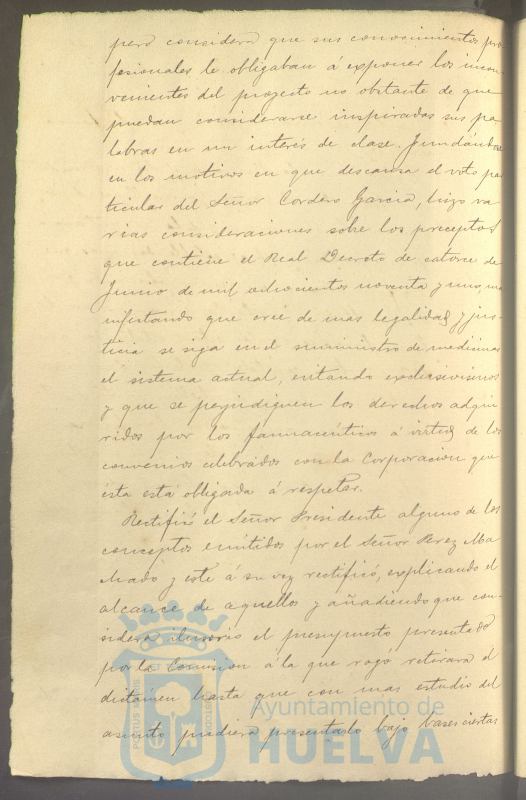 pero considera que sus conocimientos pro
fesionales le obligaban á exponer los incon
venientes del proyecto no obstante de que
puedan considerarse inspiradas sus pa
labras en un interés de clase. Fundándose
en los motivos en que descansa el voto par
ticular del Señor Cordero García, hizo va
rias consideraciones sobre los preceptos
que contiene el Real Decreto de catorce de
Junio de mil ochocientos noventa y uno ma
nifestando que cree de mas legalidad y jus-
ticia se siga en el suministro de medicinas
el sistema actual, evitando exclusivismos
y que se perjudiquen los derechos adqui
ridos por los farmacéuticos á virtud de los
convenios celebrados con la Corporacion que
ésta está obligada á respetar.
Rectificó el Señor Presidente alguno de los
conceptos emitidos por el Señor Perez Ma
chado y este á su vez rectificó, explicando el
alcance de aquellos y añadiendo que con-
sidera ilusorio el presupuesto presentado
por la Comision á la que rogó retirara el
dictámen hasta que con mas estudio del
asunto pudiera presentarlo bajo bases ciertas
Ayuntamiento de
HUELVA